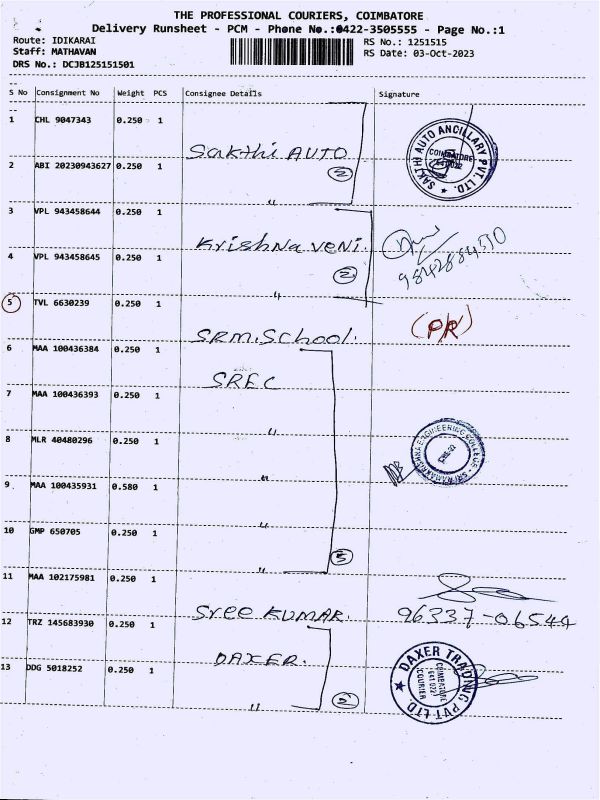 THE PROFESSIONAL COURIERS, COIMBATORE
Delivery Runsheet - PCM - Phone No.:0422-3505555 - Page No.:1
Route: IDIKARAI
Staff: MATHAVAN
DRS No.: DC3B125151501
RS No.: 1251515
RS Date: 03-Oct-2023
S No Consignment No Weight PCS Consignee Details Signature
1 CHL 9047343 0.250 1 Sakthi AUTO
SAKTHI AUTO ANCILLARY PVT. LTD. COIMBATORE
2 ABI 20230943627 0.250 1 " 2
3 VPL 943458644 0.250 1 Krishna veni.
4 VPL 943458645 0.250 1 " 2
5 TVL 6630239 0.250 1 SRM. School. (PR)
6 MAA 100436384 0.250 1 SREC
7 MAA 100436393 0.250 1 "
8 MLR 40480296 0.250 1 "
ENGINEERING COLLEGE
9 MAA 100435931 0.580 1 "
10 GMP 650705 0.250 1 " 5
11 MAA 102175981 0.250 1 Sree KUMAR. 96337-06544
12 TRZ 145683930 0.250 1 DAXER.
13 DDG 5018252 0.250 1 "
DAXER TRADING PVT LTD COIMBATORE